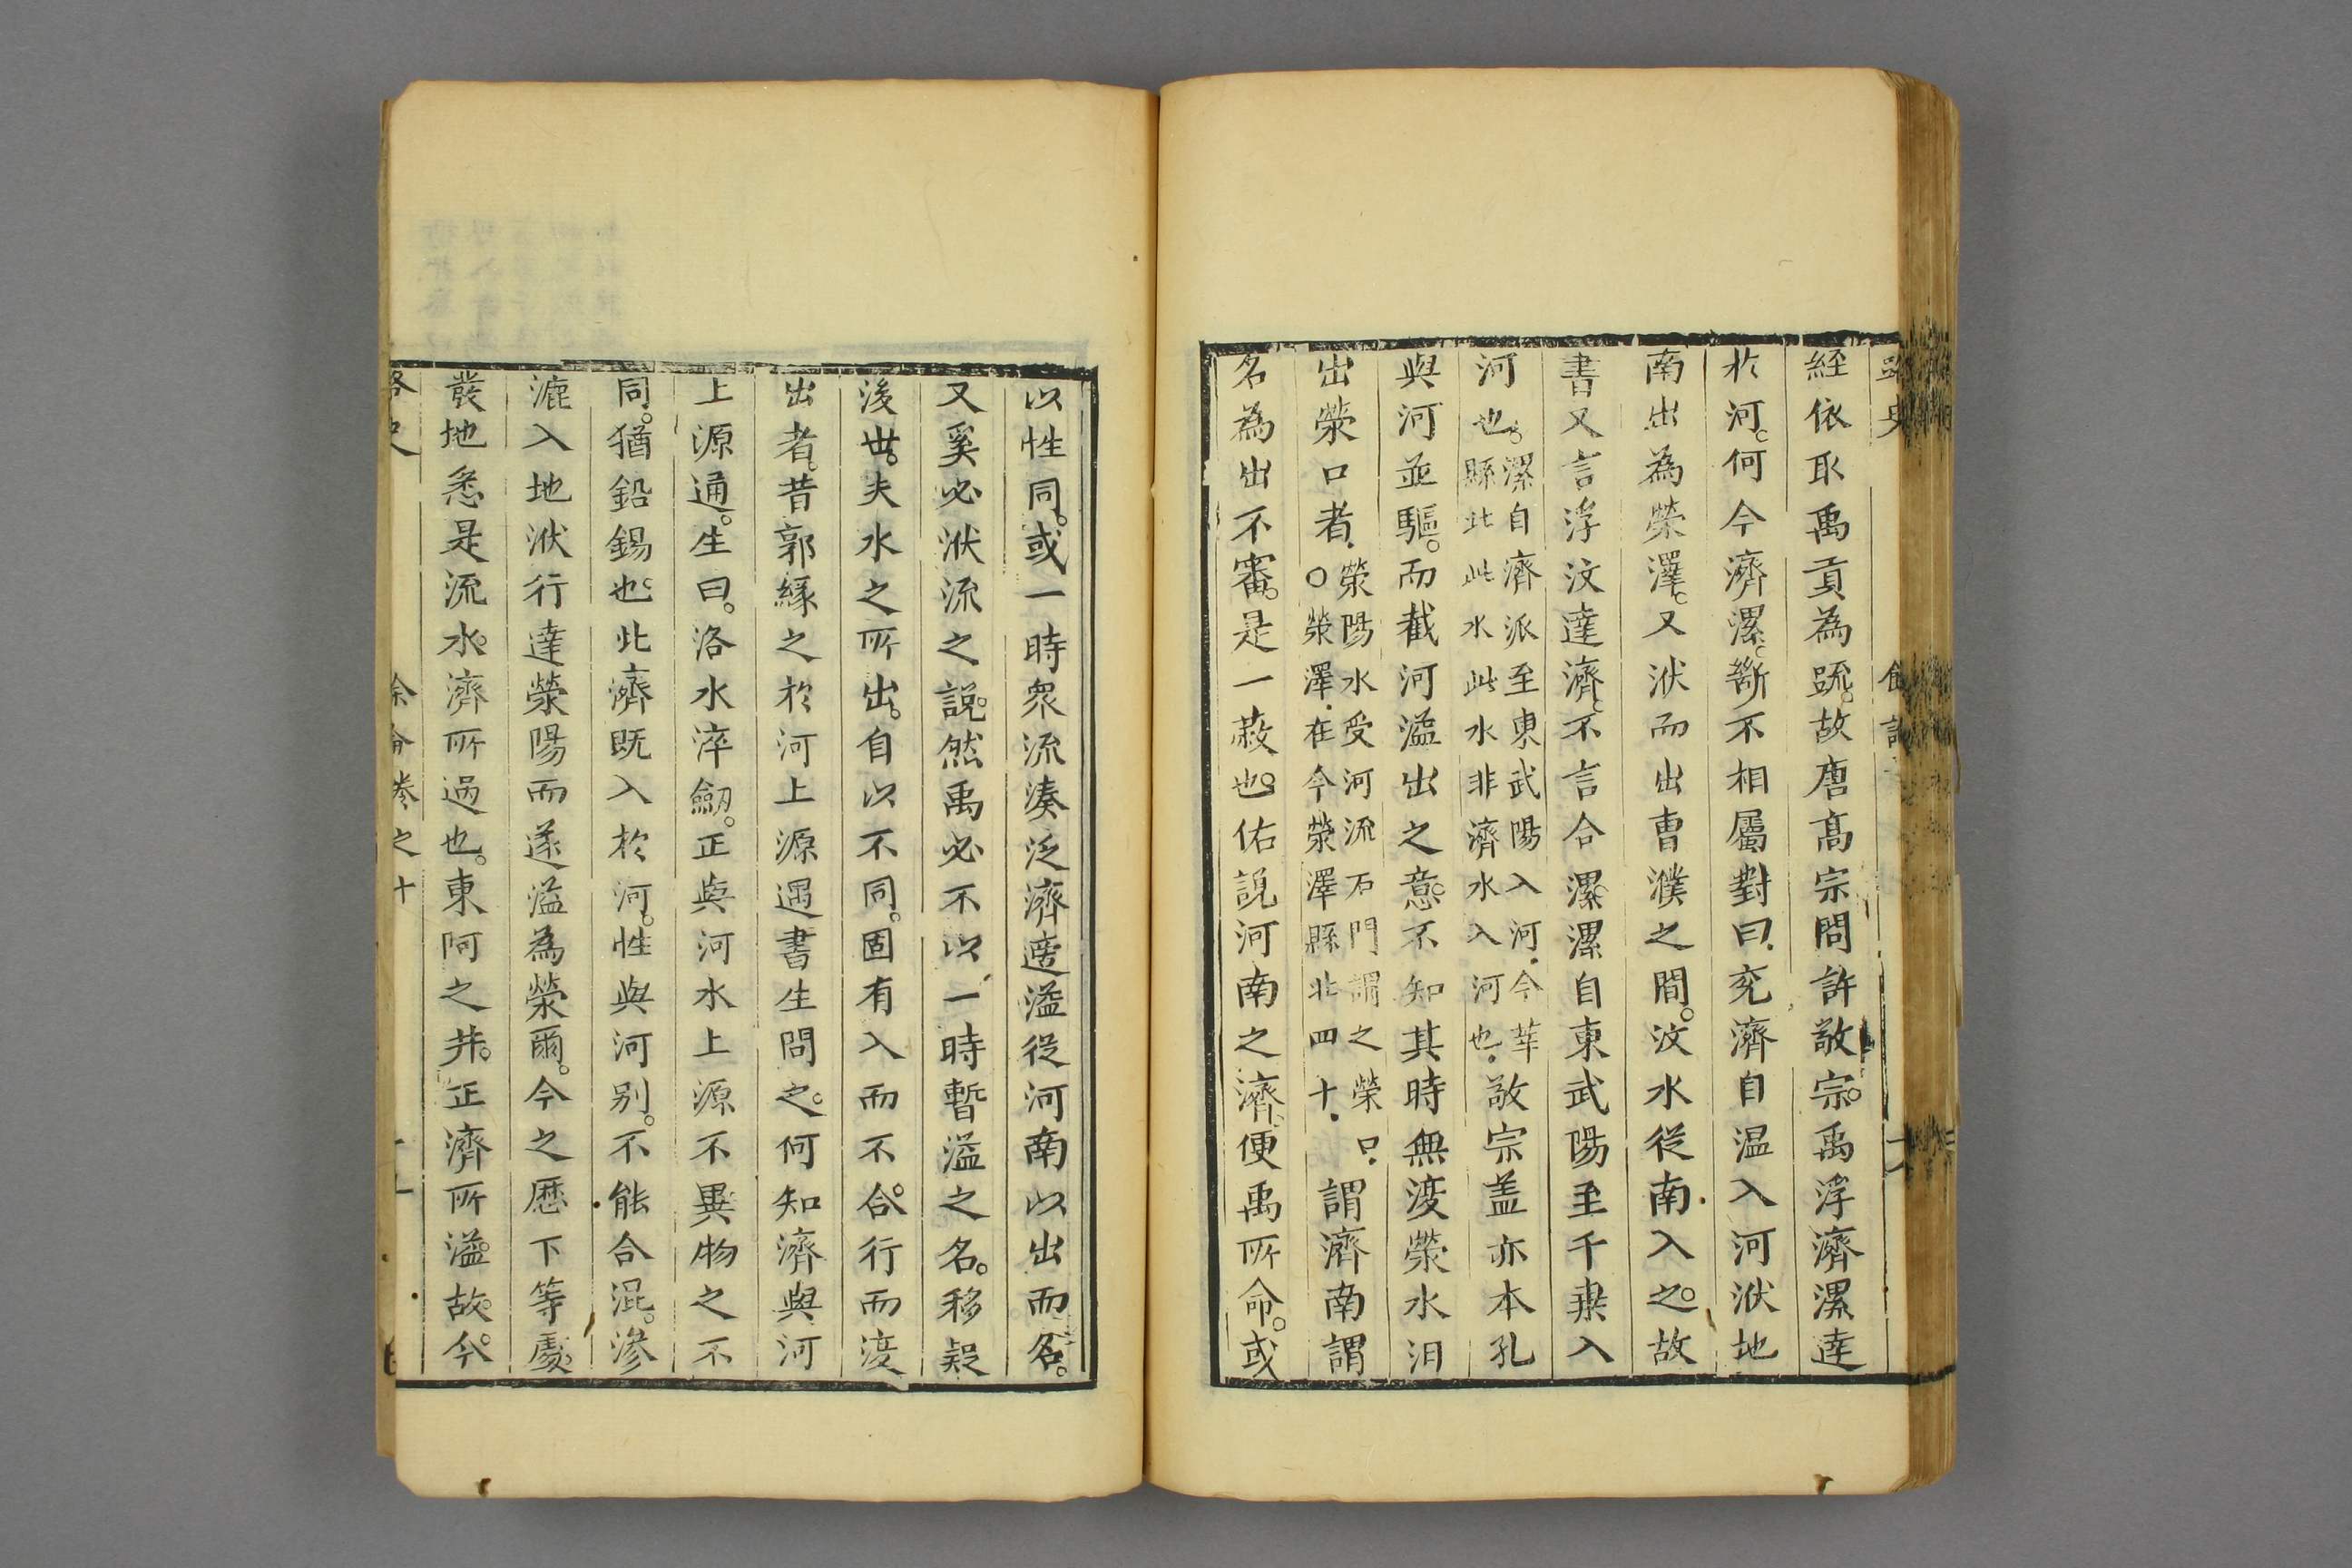 經依取禹貢為䟽。故唐髙宗問許敬宗。禹浮濟漯達
於河。何今濟漯。斷不相屬對曰。兖濟自温入河洑地
南出為滎澤。又洑而出曺濮之間。汶水從南入之。故
書又言浮汶達濟。不言合漯。漯自東武陽至千乗入
河也。漯自濟派至東武陽入河。今莘縣北此水此水非濟水入河也。敬宗盖亦本孔
與河並驅。而截河溢出之意。不知其時無渡滎水汨
出滎口者。滎陽水受河流石門謂之滎口。○滎澤在今滎澤縣北四十。謂濟南謂
名為出不審。是一蔽也。佑說河南之濟。便禹所命。或
以性同。或一時衆流湊泛濟遝溢從河南以出而名。
又奚必洑流之說。然禹必不以一時暫溢之名。移疑
後世。夫水之所出。自以不同。固有入而不合。行而渡
出者。昔郭緣之於河上源遇書生問之。何知濟與河
上源通。生曰。洛水淬劒。正與河水上源不異物之不
同。猶鉛錫也。此濟既入於河。性與河别。不能合混。滲
漉入地洑行達滎陽而遂溢為滎爾。今之歷下等處
發地悉是流水。濟所過也。東阿之井。正濟所溢。故今
路史
餘論卷之十